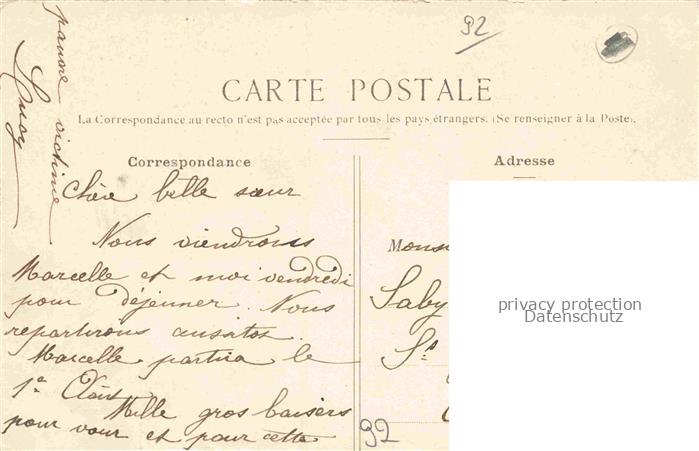 92
CARTE POSTALE
La Correspondance au recto n'est pas acceptée par tous les pays étrangers. (Se renseigner à la Poste).
Correspondance
Chère belle sœur
Nous viendrons
Marcelle et moi vendredi
pour déjeuner. Nous
repartirons aussitos.
Marcelle partira le
1e Août
Mille gros baisers
pour vous et pour cette
pauvre victime
Lucy
Adresse
Monsi
Saby
St
92
privacy protection
Datenschutz